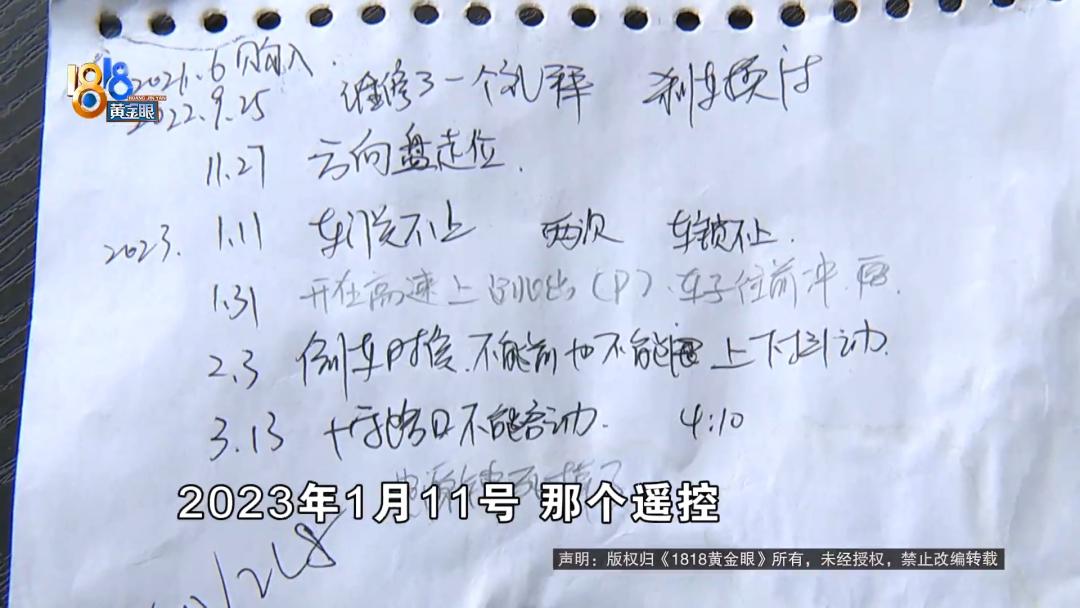 1818
黄金眼
2021.6 购入.
2022.9.25 维修了一个礼拜 刹车换过
11.27 方向盘走位.
2023. 1.11 车门关不上 两次 车锁不上.
1.31 开在高速上 跳出(P).车子往前冲.
2.3 倒车时候.不能前也不能退 上下抖动.
3.13 十字路口不能启动. 4:10
2023年1月11号 那个遥控
声明：版权归《1818黄金眼》所有，未经授权，禁止改编转载